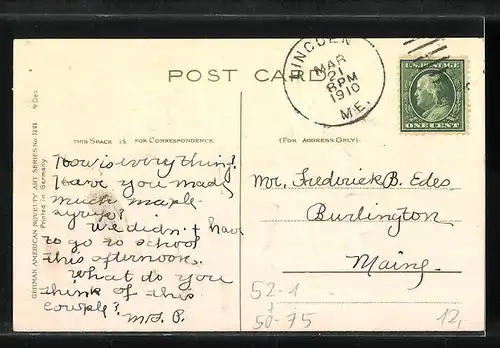 POST CARD
LINCOLN
MAR
21
8 PM
1910
ME.
U.S. POSTAGE
ONE CENT
GERMAN AMERICAN NOVELTY ART SERIES No. 1241 4 Des.
Printed in Germany.
THIS SPACE IS FOR CORRESPONDENCE
How is everything?
Have you made
much maple-
syrup?
We didn't have
to go to school
this afternoon.
What do you
think of this
couple?
M.S.P.
(FOR ADDRESS ONLY)
Mr. Frederick B. Edes
Burlington
Maine.
52-1
50-75
12,